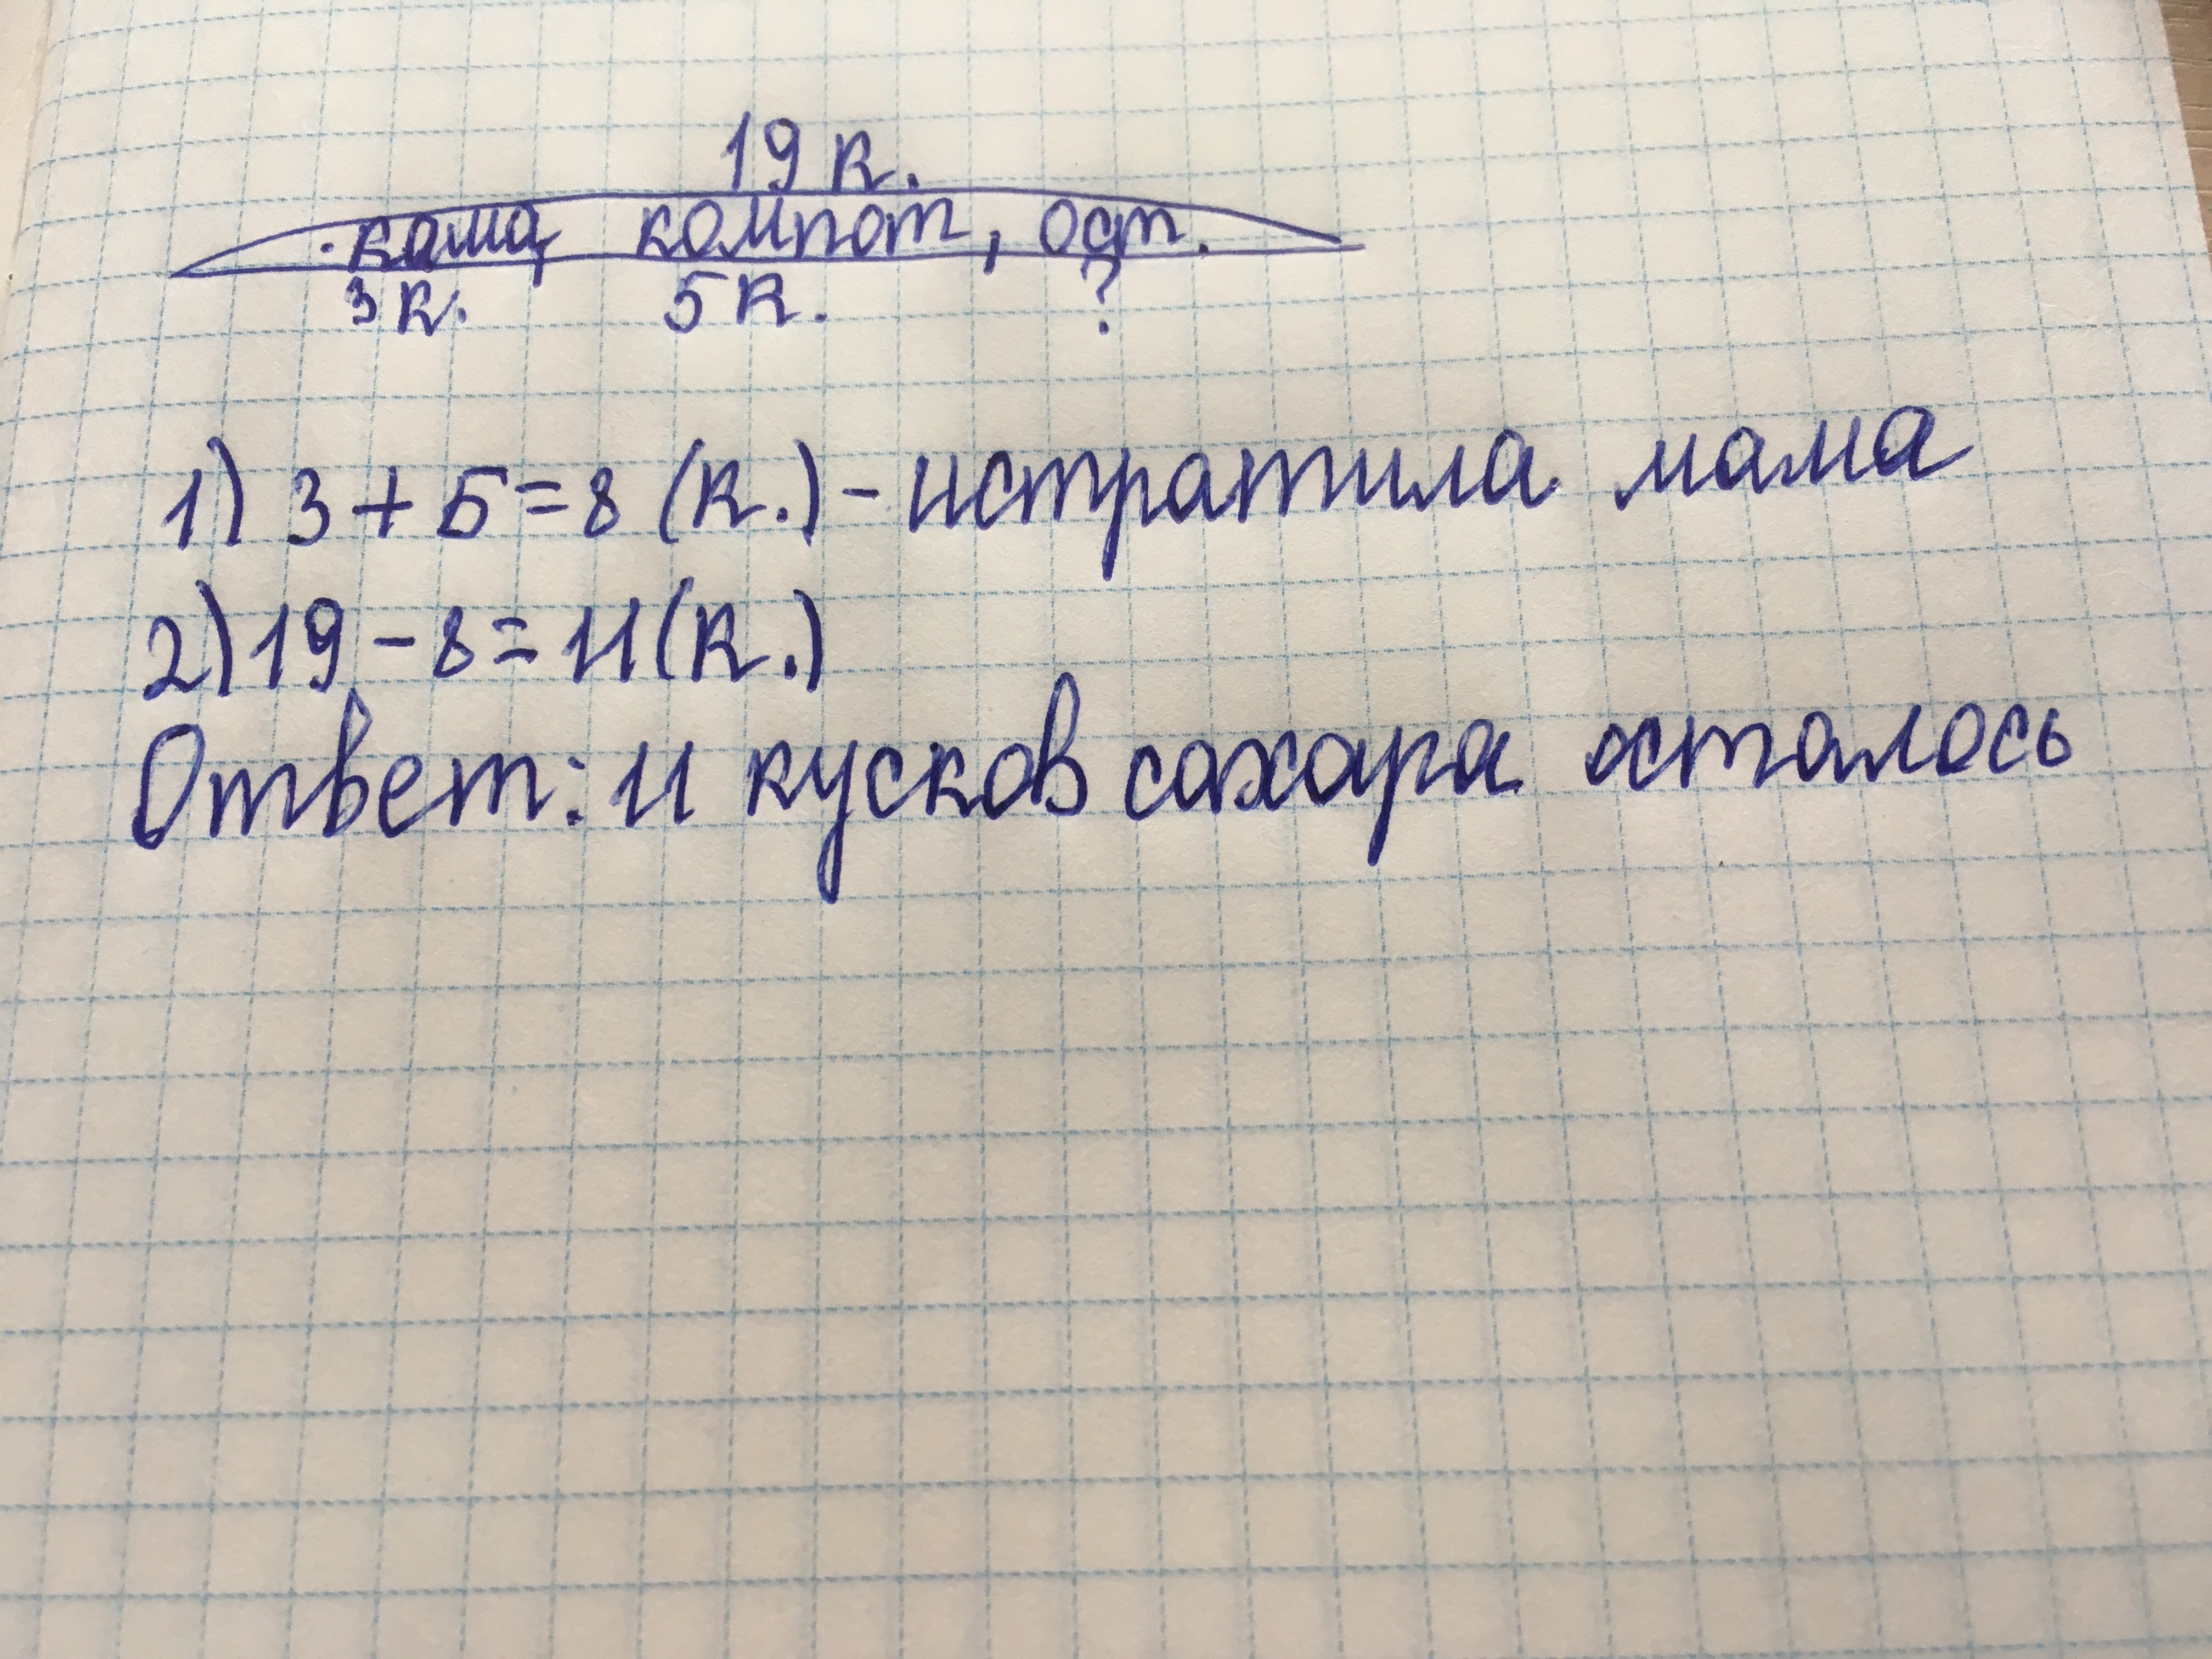 19 к.
кама, компот, ост.
3 к. 5 к. ?
1) 3 + 5 = 8 (к.) - истратила мама
2) 19 - 8 = 11 (к.)
Ответ: 11 кусков сахара осталось